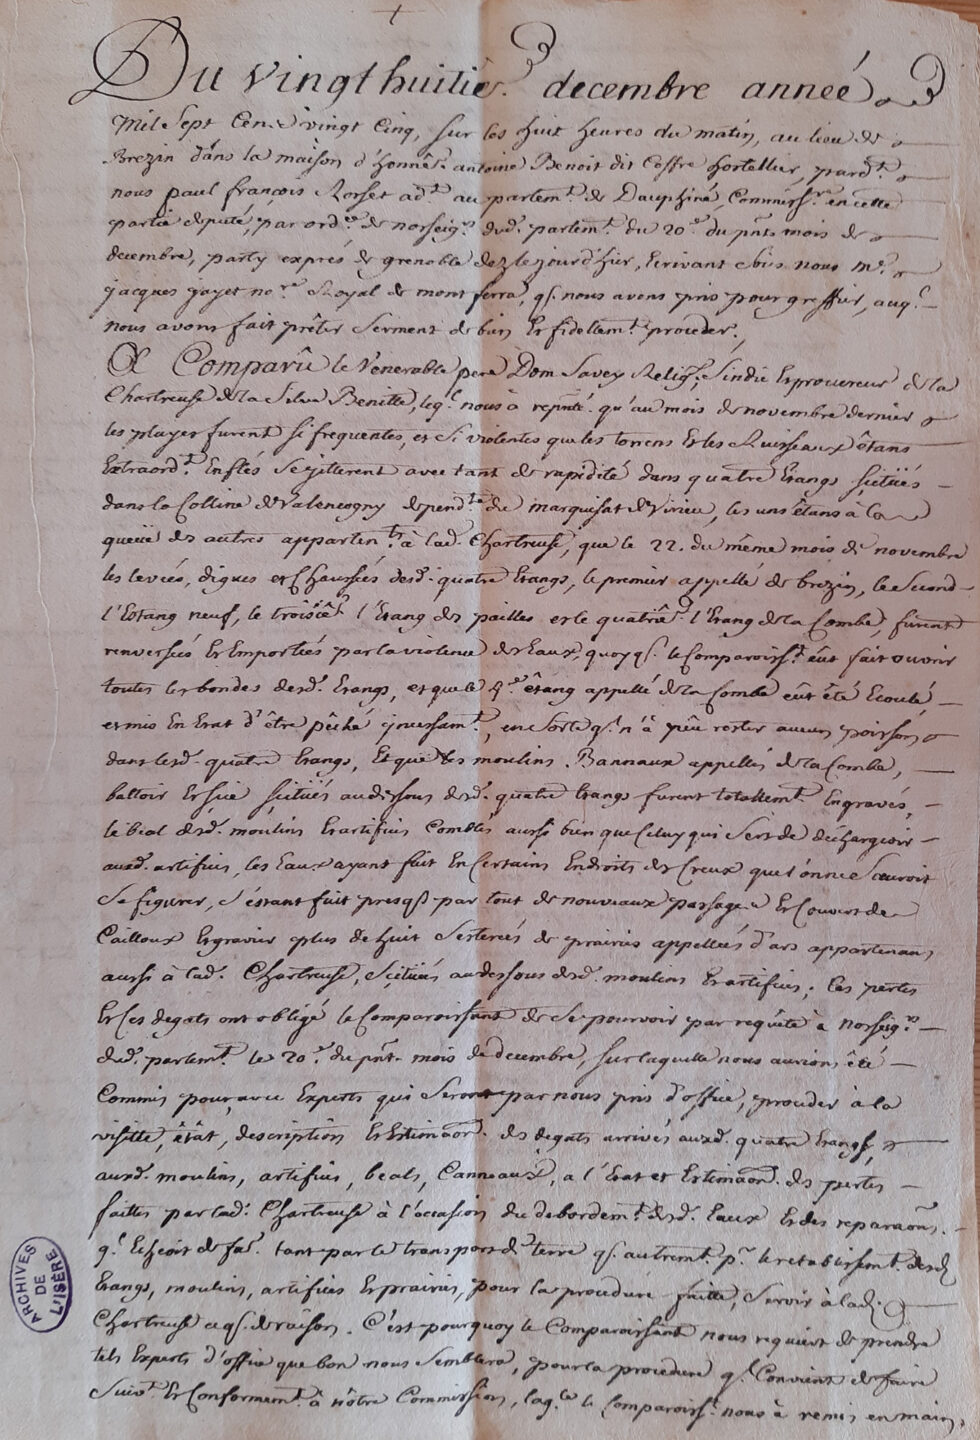 Du vingt huitiè.e decembre année
Mil Sept Cens vingt Cinq, sur les huit heures du matin, au lieu de
Brezin dans la maison d'honnête antoine Benoit dit Coffre hortellier, pard.t
nous paul françois Rosset ad.t au parlem.t de Dauphiné, Commiss.re en cette
partie deputé, par ord.ce de norseig.rs dud. parlem.t du 20.e du pñt mois de
decembre, party exprés de grenoble dez le jourd'hier, Ecrivant sous nous m.e
jacques gayet no.re Royal de mont ferra, q.l nous avons pris pour greffier, auq.l
nous avons fait prêter Serment de bien Et fidellem.t proceder.
A Comparû le Venerable pere Dom Savey Relig.x, Sindic Et procureur de la
Chartreuse de la Silve Benitte, leq.l nous à repñté qu'au mois de novembre dernier
les pluyes furent si frequentes, et Si violentes que les torrens Et les Ruisseaux êtans
Extraord.t Enflés Se jetterent avec tant de rapidité dans quatre Etangs sçitüés
dans la Colline de Valencogny depend.te du marquisat de Virieu, les uns êtans à la
queüe des autres apparten.ts à lad. Chartreuse, que le 22. du même mois de novembre
les leveés, digues et Chausseés desd. quatre Etangs, le premier appellé de brezin, le Second
l'Estang neuf, le troisiê.e l'Etang des pailles et le quatriê.e l'Etang de la Combe, furent
renverseés Et Emporteés par la violence des Eaux, quoy q.e le Comparoiss.t eût fait ouvrir
toutes les bondes desd. Etangs, et que le 4.e êtang appellé de la Combe eût êté Ecoulé
et mis En Etat d'être pêché jncessam.t, en Sorte q.l n'à pêu rester aucun poisson
dans lesd. quatre Etangs, Et que les moulins Bannaux appellés de la Combe,
battoir Et sie sçitüés audessous desd. quatre Etangs furent totallem.t Engravés,
le béal desd. moulins Et artifices Comblés aussi bien que Celuy qui Sert de déchargeoir
auxd. artifices, les Eaux ayant fait En Certains Endroits des Creux que l'on ne Sçauroit
Se figurer, S'êtant fait presq.e par tout de nouveaux passages Et Couvert de
Cailloux Et gravier plus de huit Sestereés de prairies appelleés d'ars appartenans
aussi à lad. Chartreuse, Sçitüeés audessous desd. moulins Et artifices; Ces pertes
Et Ces degats ont obligé le Comparoissant de Se pourvoir par requête à norseig.rs
dud. parlem.t le 20.e du pñt mois de decembre, sur laquelle nous aurions êté
Commis pour, avec Experts qui Seront par nous pris d'office, proceder à la
visitte, êtât, description Et Estimãon des degats arrivés auxd. quatre Etangs, et
auxd. moulins, artifices, beals, Canneaux, a l'Etat et Estimãon des pertes
faites par lad. Chartreuse à l'occasion du debordem.t desd. Eaux Et des reparãons
q.l Echeoit de fa.e tant par le transport de terre q.e autrem.t p.r le retablissem.t desd.
Etangs, moulins, artifices Et prairies, pour la procedure faitte, Servir à lad.
Chartreuse ce q.e de raison. C'est pourquoy le Comparoissant nous requiert de prendre
tels Experts d'office que bon nous Semblera, pour la procedure q.l Convient de faire
Suiv.t Et Conformem.t à nôtre Commission, laq.lle le Comparoiss.t nous à remis en main,
ARCHIVES DE L'ISÈRE